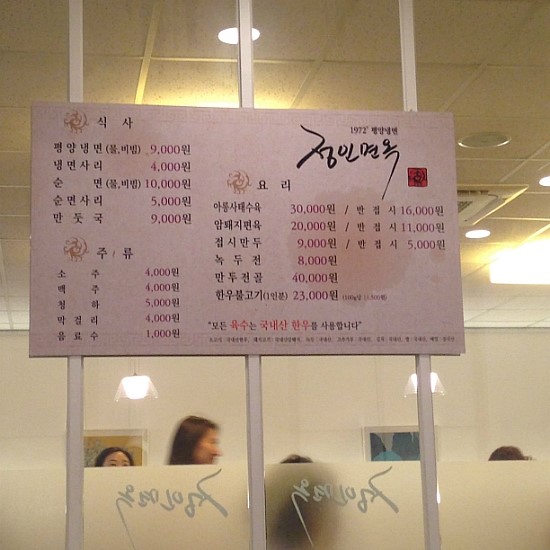 식 사
평양냉면(물,비빔) 9,000원
냉면사리 4,000원
순 면(물,비빔) 10,000원
순면사리 5,000원
만둣국 9,000원
주 류
소 주 4,000원
맥 주 4,000원
청 하 5,000원
막걸리 4,000원
음료수 1,000원
1972' 평양냉면
정인면옥
요 리
아롱사태수육 30,000원 / 반 접시 16,000원
암퇘지편육 20,000원 / 반 접시 11,000원
접시만두 9,000원 / 반 접시 5,000원
녹두전 8,000원
만두전골 40,000원
한우불고기(1인분) 23,000원
"모든 육수는 국내산 한우를 사용합니다"
정인면옥
정인면옥
정인면옥